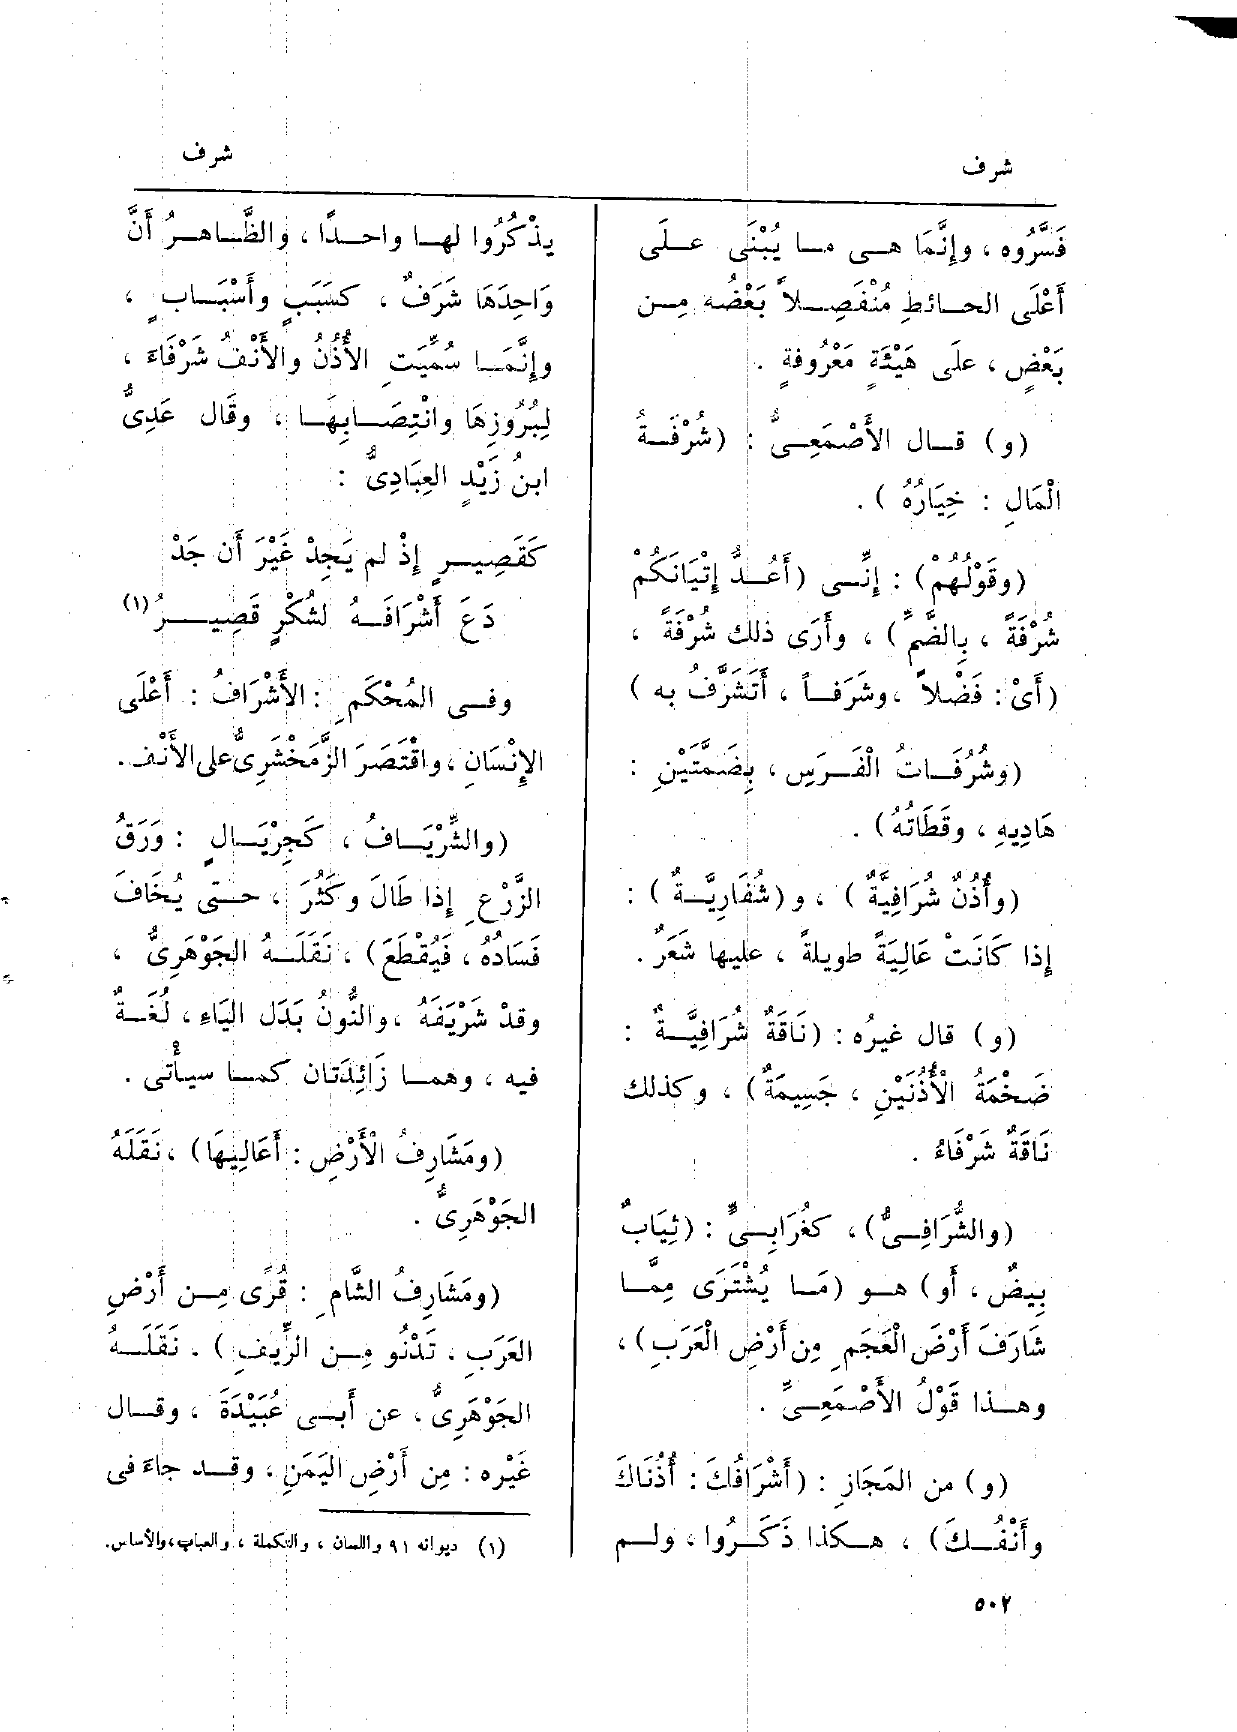 شرف
شرف
فَسَّرُوه ، وإِنَّمَا هــى مـا يُبْنَى عــلَى
أَعْلَى الحــائطِ مُنْفَصِــلاً بَعْضُه مِــن
بَعْضٍ ، علَى هَيْئَةٍ مَعْرُوفةٍ .
(و) قــال الأَصْمَعِــىُّ : (شُرْفَــةُ
الْمَالِ : خِيَارُهُ ) .
(وقَوْلُهُمْ) : إِنِّــى (أَعُــدُّ إِتْيَانَكُمْ
شُرْفَةً ، بِالضَّمِّ) ، وأَرَى ذلك شُرْفَةً ،
(أَىْ : فَضْلاً ، وشَرَفــاً ، أَتَشَرَّفُ به )
(وشُرُفَــاتُ الْفَــرَسِ ، بِضَمَّتَيْنِ :
هَادِيهِ ، وقَطَاتُهُ) .
(وأُذُنٌ شُرَافِيَّةٌ ) ، و(شُفَارِيَّــةٌ ) :
إذا كَانَتْ عَالِيَةً طويلةً ، عليها شَعَرٌ .
(و) قال غيرُه : (نَاقَةٌ شُرَافِيَّــةٌ :
ضَخْمَةُ الأُذُنَيْنِ ، جَسِيمَةٌ) ، وكذلك
نَاقَةٌ شَرْفَاءُ .
(والشُّرَافِــىُّ) ، كغُرَابِــىٍّ : (ثِيَابٌ
بِيضٌ ، أَو) هــو (مَــا يُشْتَرَى مِمَّــا
شَارَفَ أَرْضَ الْعَجَمِ مِن أَرْضِ الْعَرَبِ) ،
وهــذا قَوْلُ الأَصْمَعِــىِّ .
(و) من المَجَازِ : (أَشْرَافُكَ : أُذُنَاكَ
وأَنْفُــكَ) ، هــكذا ذَكَــرُوا ، ولــم
يذْكُرُوا لهــا واحــدًا ، والظَّــاهــرُ أَنَّ
وَاحِدَهَا شَرَفٌ ، كسَبَبٍ وأَسْبَــابٍ ،
وإِنَّمَــا سُمِّيَتِ الأُذُنُ والأَنْــفُ شَرْفَاءَ ،
لِبُرُوزِهَا وانْتِصَــابِهَــا ، وقَال عَدِىُّ
ابنُ زَيْدٍ العِبَادِىُّ :
كَقَصِيــرٍ إِذْ لم يَجِدْ غَيْرَ أَن جَدْ
دَعَ أَشْرَافَــهُ لشُكْرٍ قَصِيــــرُ (١)
وفــى المُحْكَمِ : الأَشْرَافُ : أَعْلَى
الإِنْسَانِ ، واقْتَصَرَ الزَّمَخْشَرِىُّ على الأَنْف .
(والشِّرْيَــافُ ، كَجِرْيَــالٍ : وَرَقُ
الزَّرْعِ إذا طَالَ وكَثُرَ ، حــتى يُخَافَ
فَسَادُهُ ، فَيُقْطَعَ) ، نَقَلَــهُ الجَوْهَرِىُّ ،
وقدْ شَرْيَفَهُ ، والنُّونُ بَدَل الياءِ ، لُغَــةٌ
فيه ، وهمــا زَائِدَتَان كمــا سيأْتى .
(ومَشَارِفُ الْأَرْضِ : أَعَالِيهَا) ، نَقَلَهُ
الجَوْهَرِىُّ .
(ومَشَارِفُ الشَّامِ : قُرًى مِــن أَرْضِ
العَرَبِ ، تَدْنُو مِــن الرِّيفِ ) . نَقَلَــهُ
الجَوْهَرِىُّ ، عن أَبــى عُبَيْدَةَ ، وقــال
غَيْره : مِن أَرْضِ اليَمَنِ ، وقــد جاءَ فى
(١) ديوانه ٩١ واللسان ، والتكملة ، والعباب ، والأساس .
٥٠٢